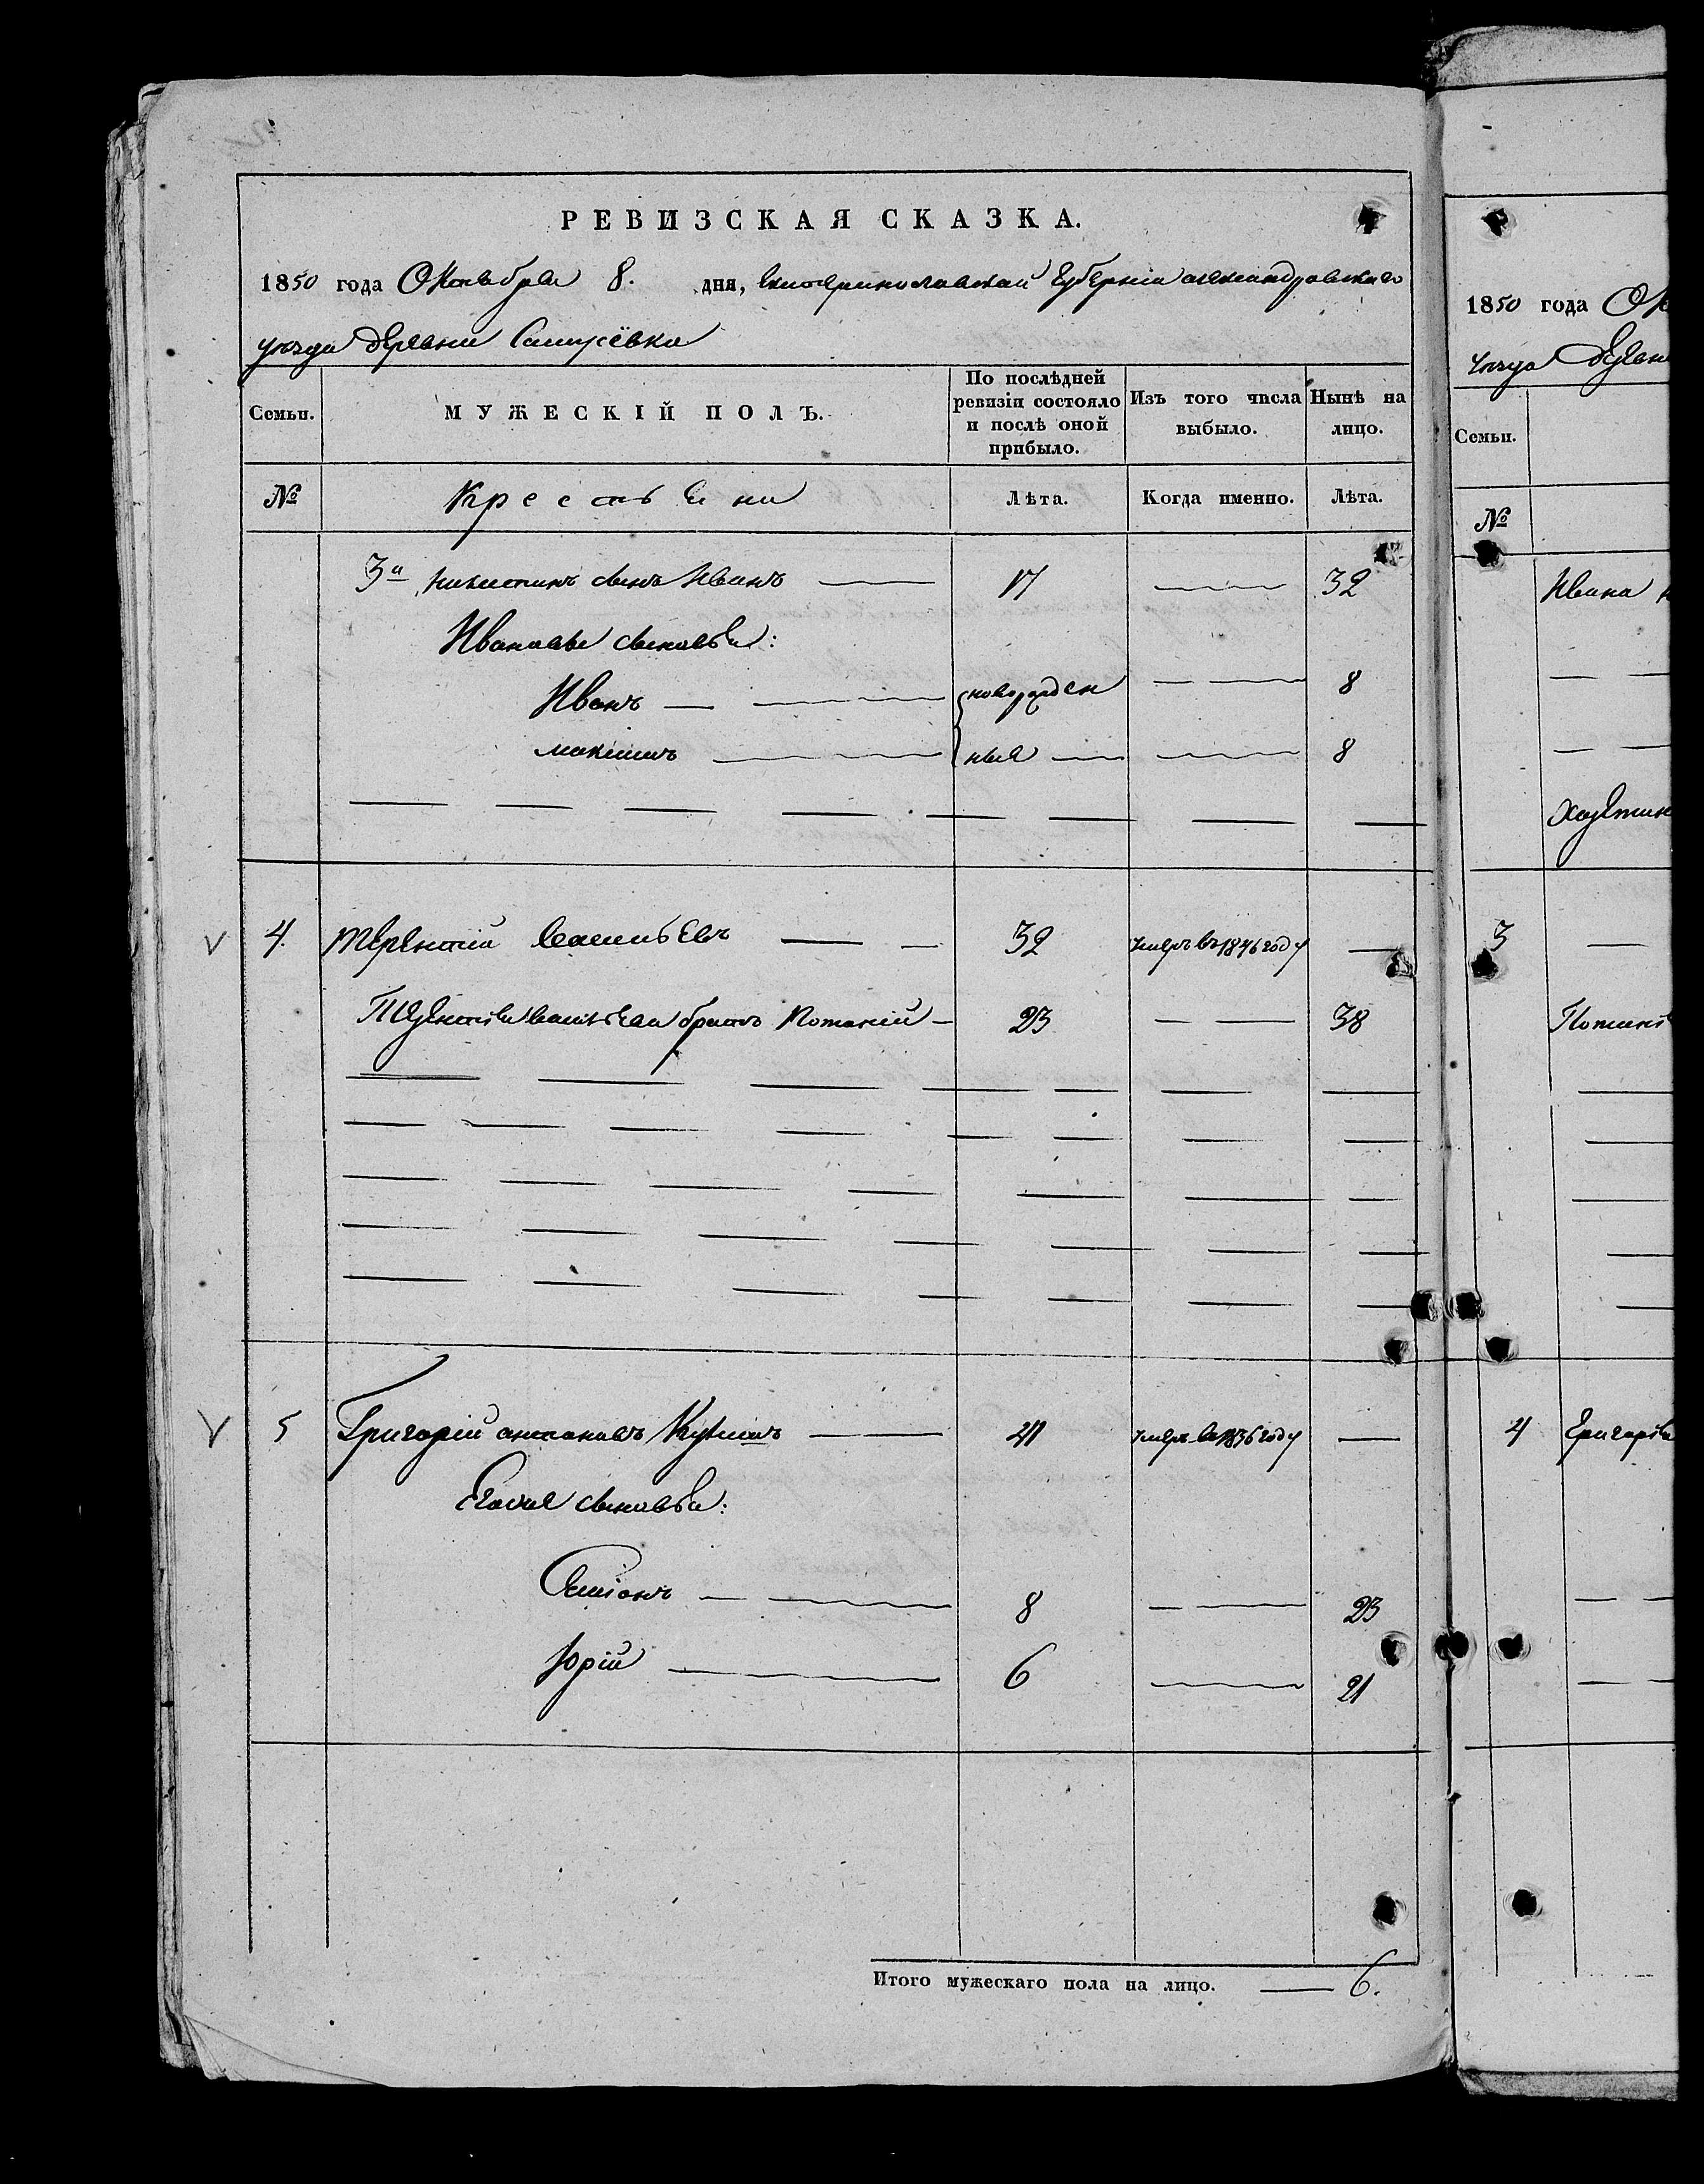 РЕВИЗСКАЯ СКАЗКА.
1850 года Октября 8. дня, Екатеринославской Губерніи Александровскаго
уѣзда деревни Самусёвки
Семьи.
МУЖЕСКІЙ ПОЛЪ.
По послѣдней ревизіи состояло и послѣ оной прибыло.
Изъ того числа выбыло.
Нынѣ на лицо.
№ Крестьяни Лѣта. Когда именно. Лѣта.
3й Никитинъ сынъ Иванъ 17 32
Ивановы сыновья:
Иванъ новорожден 8
Максимъ ныя 8
4. Терентій Васильевъ 32 умеръ въ 1846 году
Терентія Васильева братъ Потапій 23 38
5 Григорій Антоновъ умеръ въ 1836 году
Его сыновья:
Симіонъ 8 23
Юрій 6 21
Итого мужескаго пола на лицо. 6.
1850 года Ок
уѣзда Деревн
Семьи.
№
Ивана
3
Потапі
4 Григорія